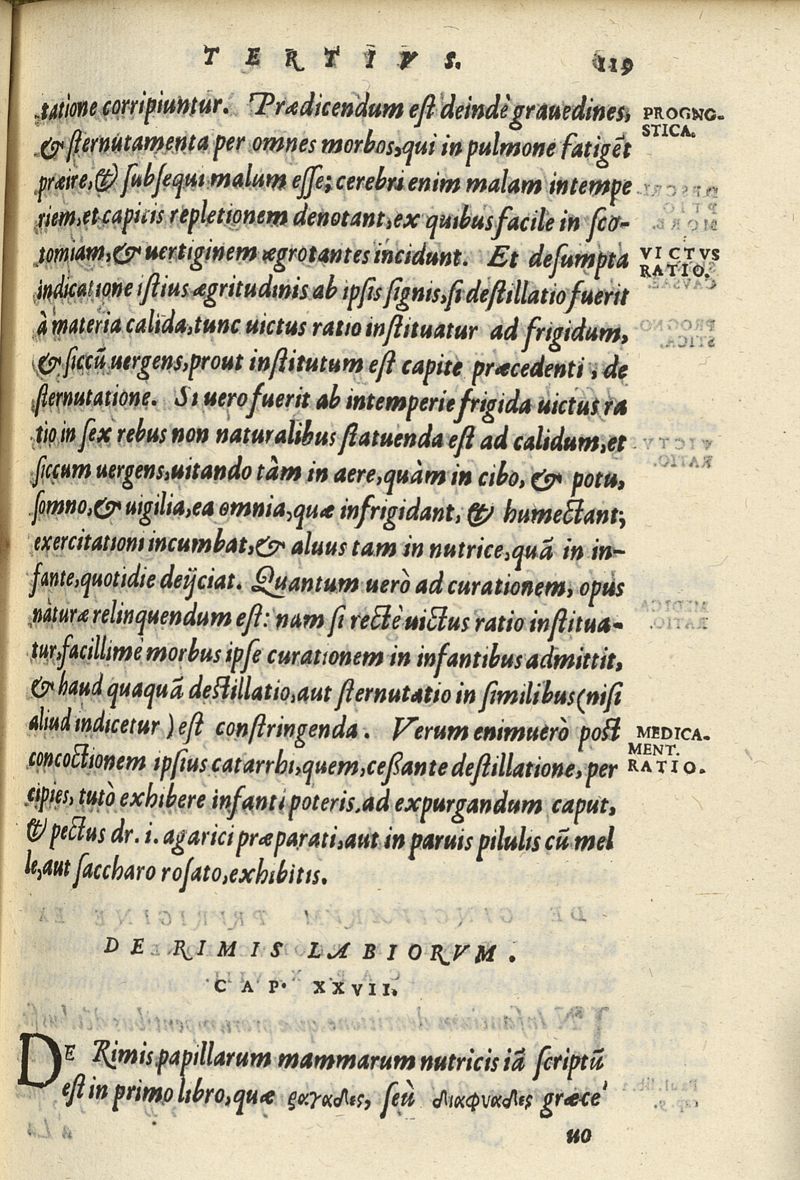 TERTIVS. 119
tatione corripiuntur. Prædicendum est deindè grauedines, PROGNO-
& sternutamenta per omnes morbos, qui in pulmone fatigēt STICA.
præire, & subsequi malum esse; cerebri enim malam intempe
riem, et capitis repletionem denotant, ex quibus facile in sco-
tomiam, & uertiginem ægrotantes incidunt. Et desumpta VICTVS
indicatione istius ægritudinis ab ipsis signis, si destillatio fuerit RATIO.
à materia calida, tunc uictus ratio instituatur ad frigidum,
& siccū uergens, prout institutum est capite præcedenti, de
sternutatione. Si uero fuerit ab intemperie frigida uictus ra
tio in sex rebus non naturalibus statuenda est ad calidum, et
siccum uergens, uitando tàm in aere, quàm in cibo, & potu,
somno, & uigilia, ea omnia, quæ infrigidant, & humectant;
exercitationi incumbat, & aluus tam in nutrice, quā in in-
fante, quotidie deijciat. Quantum uerò ad curationem, opus
naturæ relinquendum est: nam si rectè uictus ratio institua-
tur, facillimè morbus ipse curationem in infantibus admittit,
& haud quaquā destillatio, aut sternutatio in similibus (nisi
aliud indicetur) est constringenda. Verum enimuerò post MEDICA-
concoctionem ipsius catarrhi, quem, cessante destillatione, per MENT.
cipies, tutò exhibere infanti poteris. ad expurgandum caput, RATIO.
& pectus dr. i. agarici præparati, aut in paruis pilulis cū mel
le, aut saccharo rosato, exhibitis.
DE RIMIS LABIORVM.
CAP. XXVII.
DE Rimis papillarum mammarum nutricis iā scriptū
est in primo libro, quæ ῥαγαδες, seù διαφυαδες græce
uo